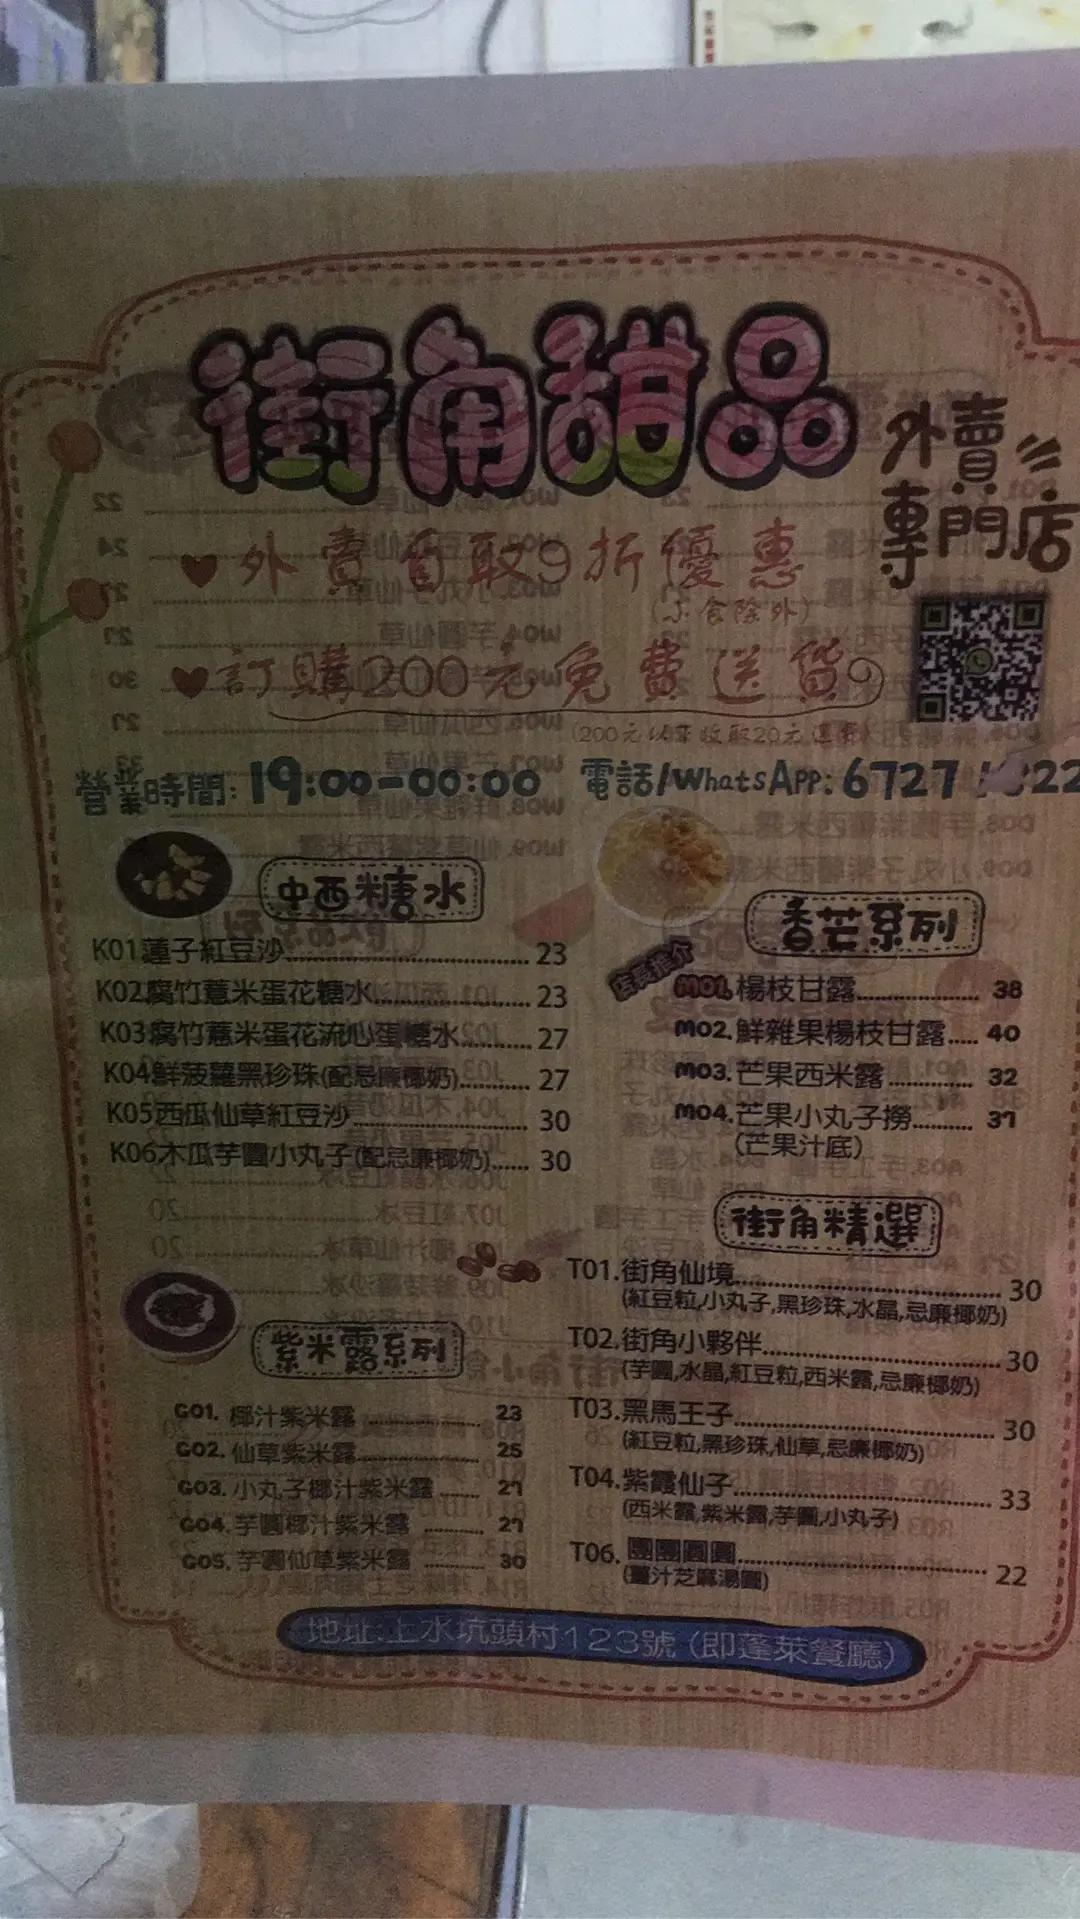 街角甜品
外賣
專門店
外賣自取9折優惠
(小食除外)
訂購200元免費送貨
(200元以下收取20元運費)
營業時間:19:00-00:00 電話/WhatsApp:6727
中西糖水
K01蓮子紅豆沙 23
K02.腐竹薏米蛋花糖水 23
K03腐竹薏米蛋花流心蛋糖水 27
K04鮮菠蘿黑珍珠(配忌廉椰奶) 27
K05西瓜仙草紅豆沙 30
K06.木瓜芋圓小丸子(配忌廉椰奶) 30
香芒系列
店長推介
M01.楊枝甘露 38
M02.鮮雜果楊枝甘露 40
M03.芒果西米露 32
M04.芒果小丸子撈 37
(芒果汁底)
街角精選
T01.街角仙境 30
(紅豆粒,小丸子,黑珍珠,水晶,忌廉椰奶)
T02.街角小夥伴 30
(芋圓,水晶,紅豆粒,西米露,忌廉椰奶)
T03.黑馬王子 30
(紅豆粒,黑珍珠,仙草,忌廉椰奶)
T04.紫霞仙子 33
(西米露,紫米露,芋圓,小丸子)
T06.團團圓圓 22
(薑汁芝麻湯圓)
紫米露系列
G01.椰汁紫米露 23
G02.仙草紫米露 25
G03.小丸子椰汁紫米露 27
G04.芋圓椰汁紫米露 27
G05.芋圓仙草紫米露 30
地址:上水坑頭村123號(即蓬萊餐廳)